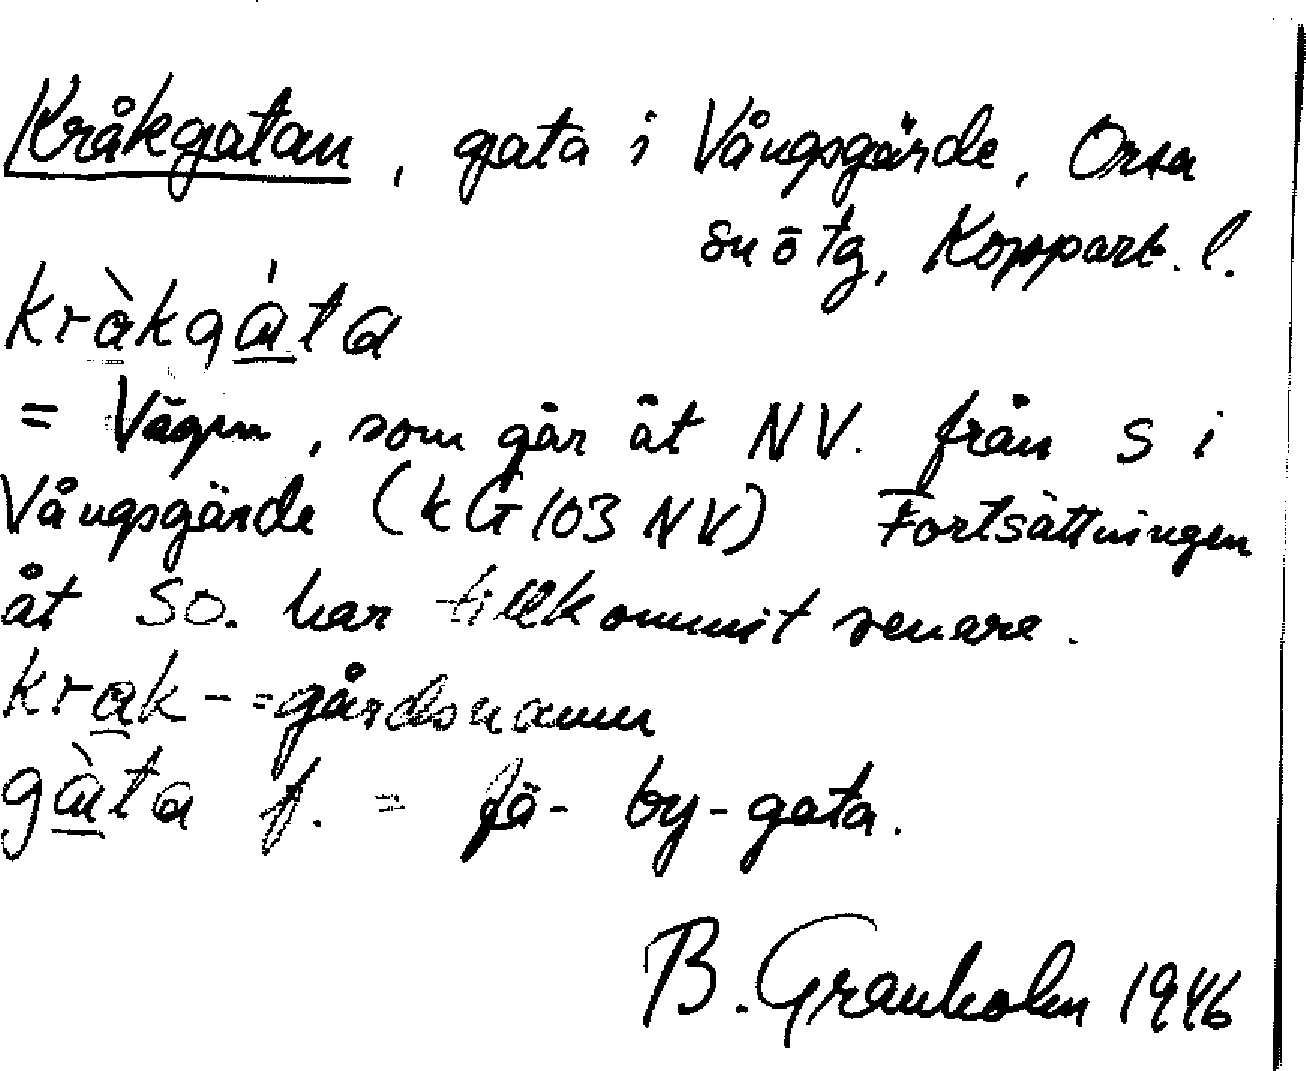 Kråkgatan, gata i Vångsgärde, Orsa
sn ö tg, Kopparb. l.
kràkgáta
= Vägen, som går åt NV. från S i
Vångsgärde (kG 103 NV) Fortsättningen
åt SO. har tillkommit senare.
krak- = gårdsnamn
gàta f. = fä- by-gata.
B. Granholm 1946